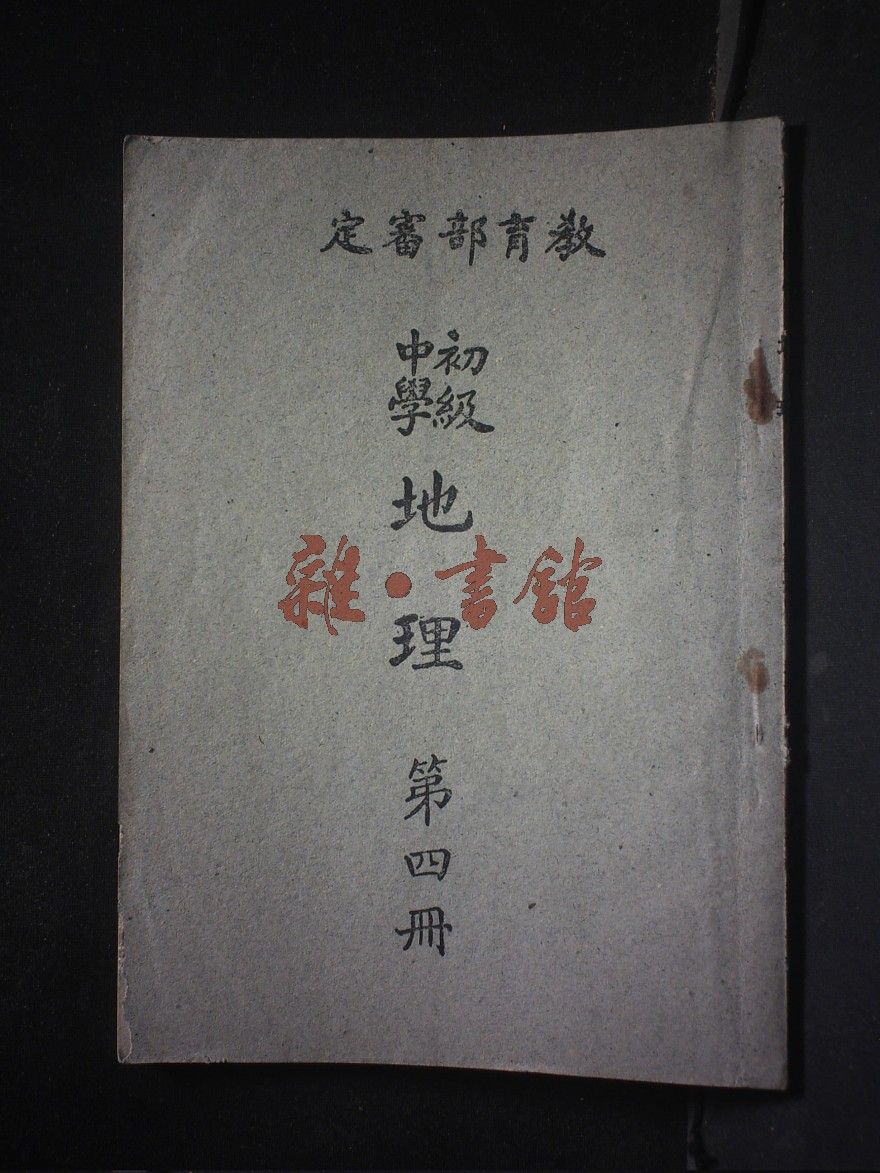 教育部審定
初級
中學
地理
雜·書館
第四冊